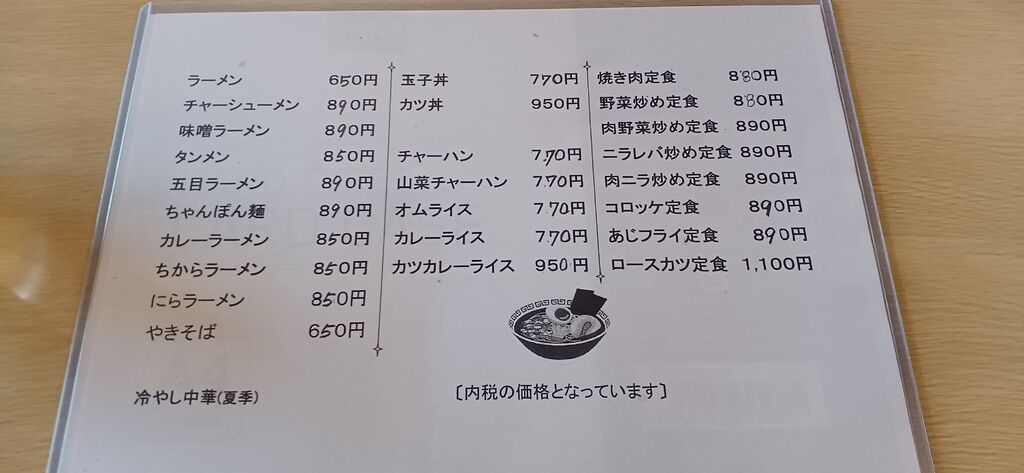 ラーメン 650円
チャーシューメン 890円
味噌ラーメン 890円
タンメン 850円
五目ラーメン 890円
ちゃんぽん麺 890円
カレーラーメン 850円
ちからラーメン 850円
にらラーメン 850円
やきそば 650円
冷やし中華(夏季)
玉子丼 770円
カツ丼 950円
チャーハン 770円
山菜チャーハン 770円
オムライス 770円
カレーライス 770円
カツカレーライス 950円
焼き肉定食 880円
野菜炒め定食 880円
肉野菜炒め定食 890円
ニラレバ炒め定食 890円
肉ニラ炒め定食 890円
コロッケ定食 890円
あじフライ定食 890円
ロースカツ定食 1,100円
〔内税の価格となっています〕